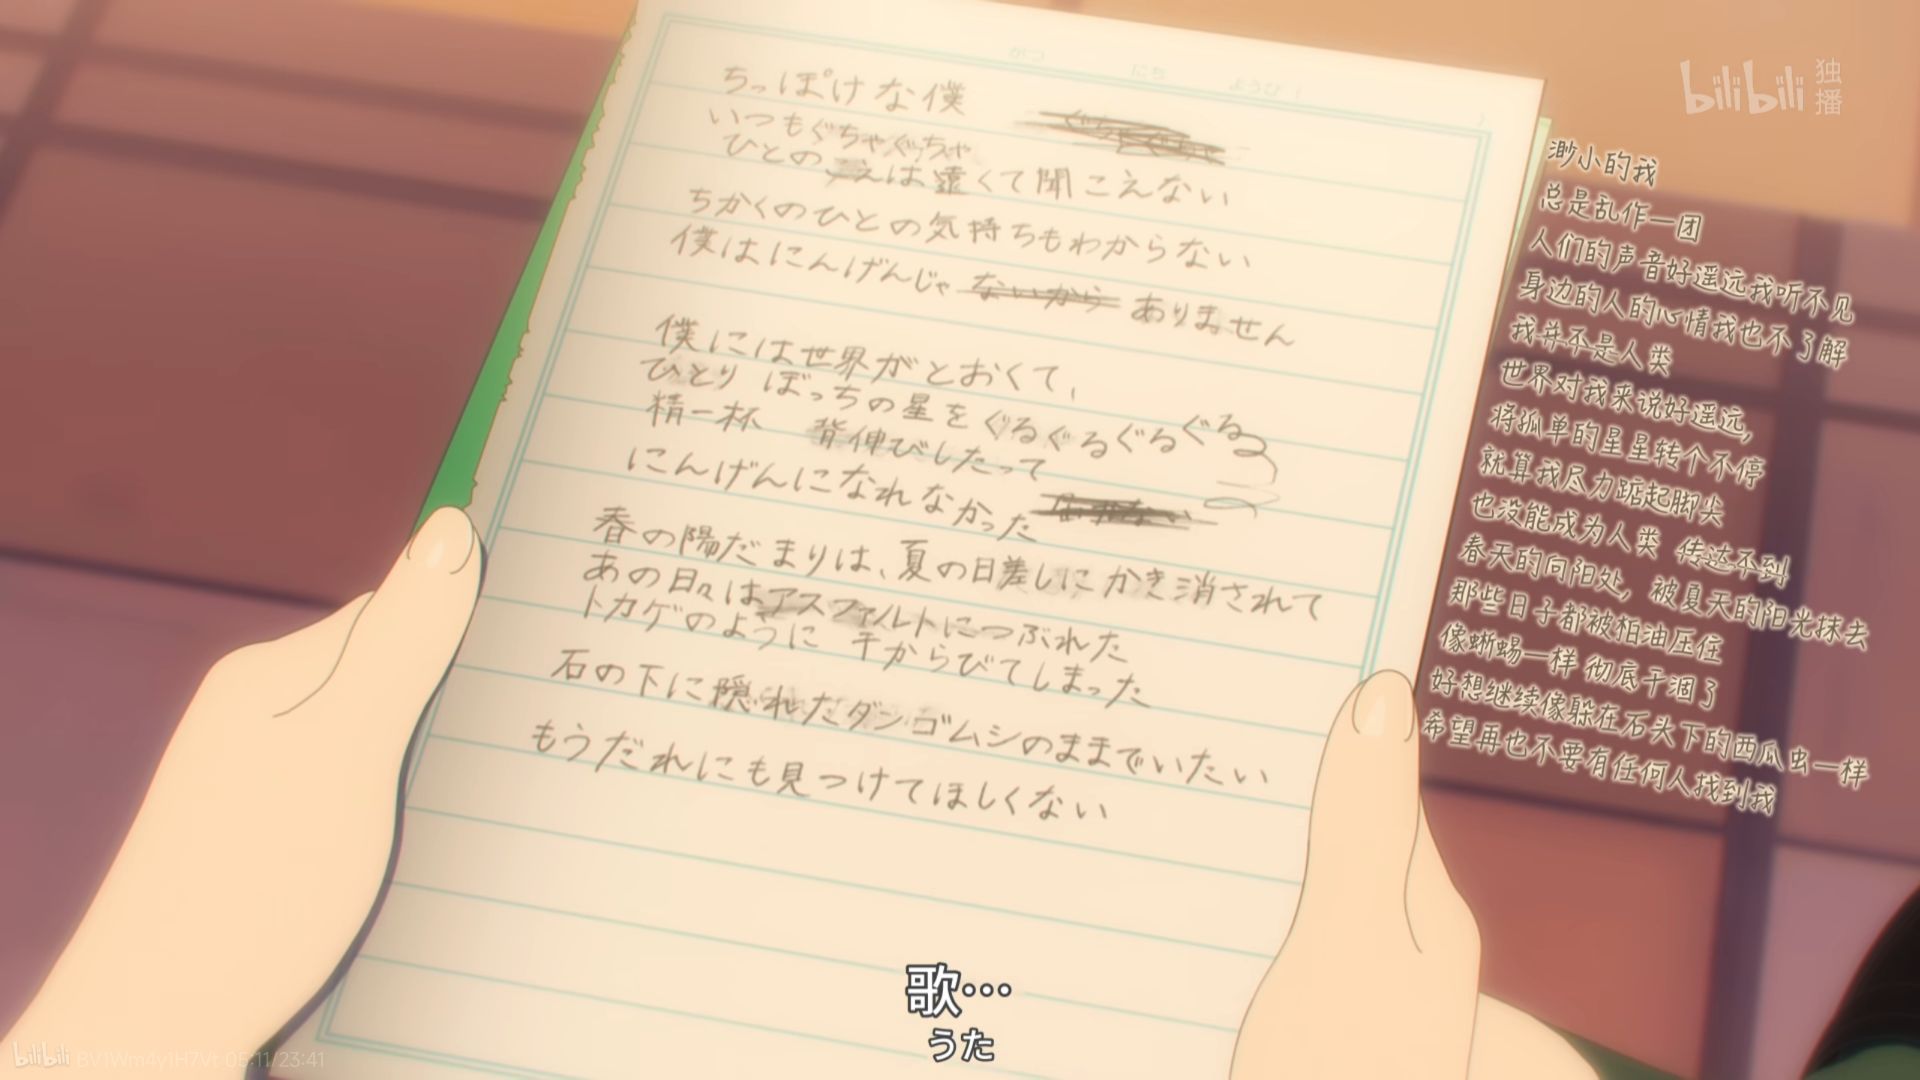 がつ にち ようび
ちっぽけな僕
いつもぐちゃぐちゃ
ひとのこえは遠くて聞こえない
ちかくのひとの気持ちもわからない
僕はにんげんじゃ ないから ありません
僕には世界がとおくて、
ひとり ぼっちの星をぐるぐるぐるぐる
精一杯 背伸びしたって
にんげんになれなかった
春の陽だまりは、夏の日差しにかき消されて
あの日々はアスファルトにつぶれた
トカゲのように 干からびてしまった
石の下に隠れたダンゴムシのままでいたい
もうだれにも見つけてほしくない
bilibili 独播
渺小的我
总是乱作一团
人们的声音好遥远我听不见
身边的人的心情我也不了解
我并不是人类
世界对我来说好遥远,
将孤单的星星转个不停
就算我尽力踮起脚尖
也没能成为人类 传达不到
春天的向阳处, 被夏天的阳光抹去
那些日子都被柏油压住
像蜥蜴一样 彻底干涸了
好想继续像躲在石头下的西瓜虫一样
希望再也不要有任何人找到我
歌…
うた
bilibili BV1Wm4y1H7Vt 05:11/23:41